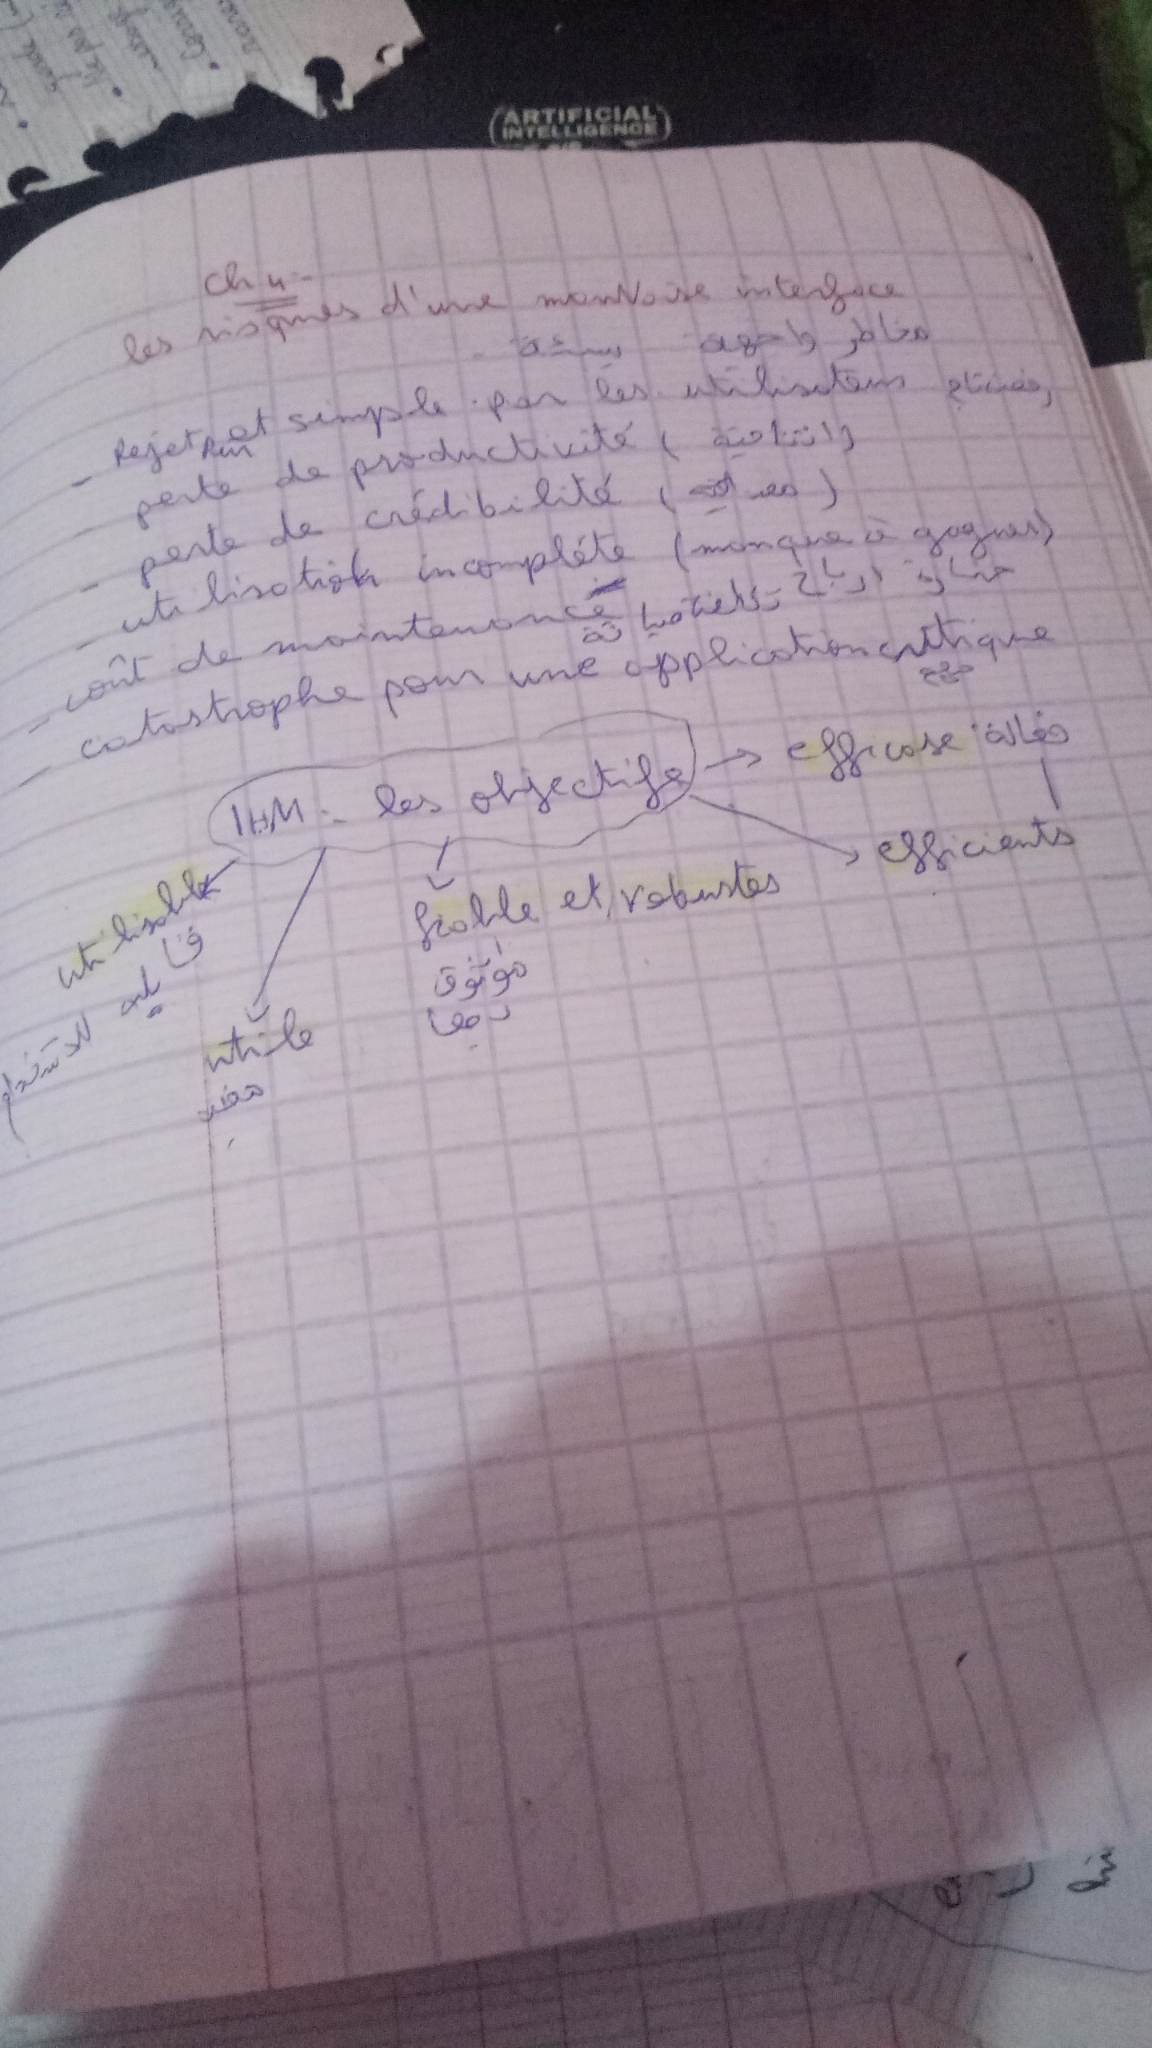 ARTIFICIAL
INTELLIGENCE
ch 4:-
les risques d'une mauvaise interface
مخاطر واجهة سيئة
- Rejet pur et simple par les utilisateurs
- perte de productivité ( انتاجية
- perte de crédibilité (مصداقية)
- utilisation incompléte (manque à gagner)
خسارة ارباح
- coût de maintenance تكلفة صيانة
- catastrophe pour une application critique
حرج
IHM:- les objectifs → efficase فعالة
efficients
utilisable
قابلية للاستخدام
fiable et robustes
موثوق
utile
مفيد